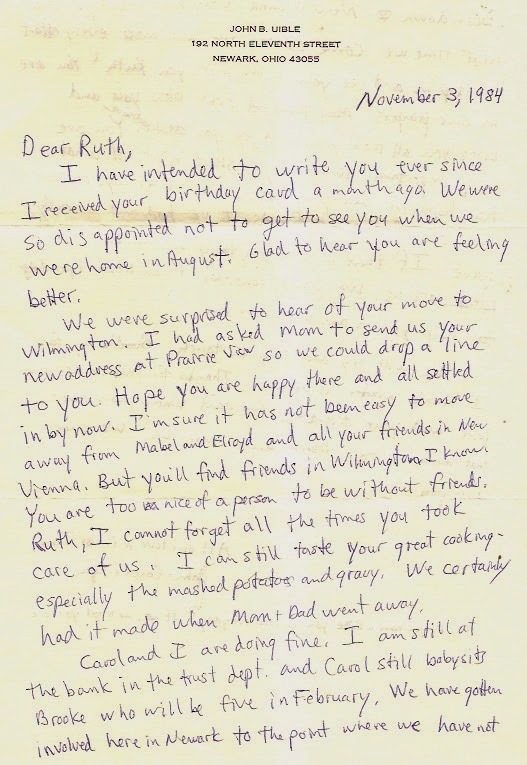 JOHN B. UIBLE
192 NORTH ELEVENTH STREET
NEWARK, OHIO 43055
November 3, 1984
Dear Ruth,
I have intended to write you ever since
I received your birthday card a month ago. We were
so disappointed not to get to see you when we
were home in August. Glad to hear you are feeling
better.
We were surprised to hear of your move to
Wilmington. I had asked Mom to send us your
new address at Prairie View so we could drop a line
to you. Hope you are happy there and all settled
in by now. I'm sure it has not been easy to move
away from Mabel and Elroyd and all your friends in New
Vienna. But you'll find friends in Wilmington I know.
You are too nice of a person to be without friends.
Ruth, I cannot forget all the times you took
care of us. I can still taste your great cooking-
especially the mashed potatoes and gravy. We certainly
had it made when Mom + Dad went away.
Carol and I are doing fine. I am still at
the bank in the trust dept. and Carol still babysits
Brooke who will be five in February. We have gotten
involved here in Newark to the point where we have not